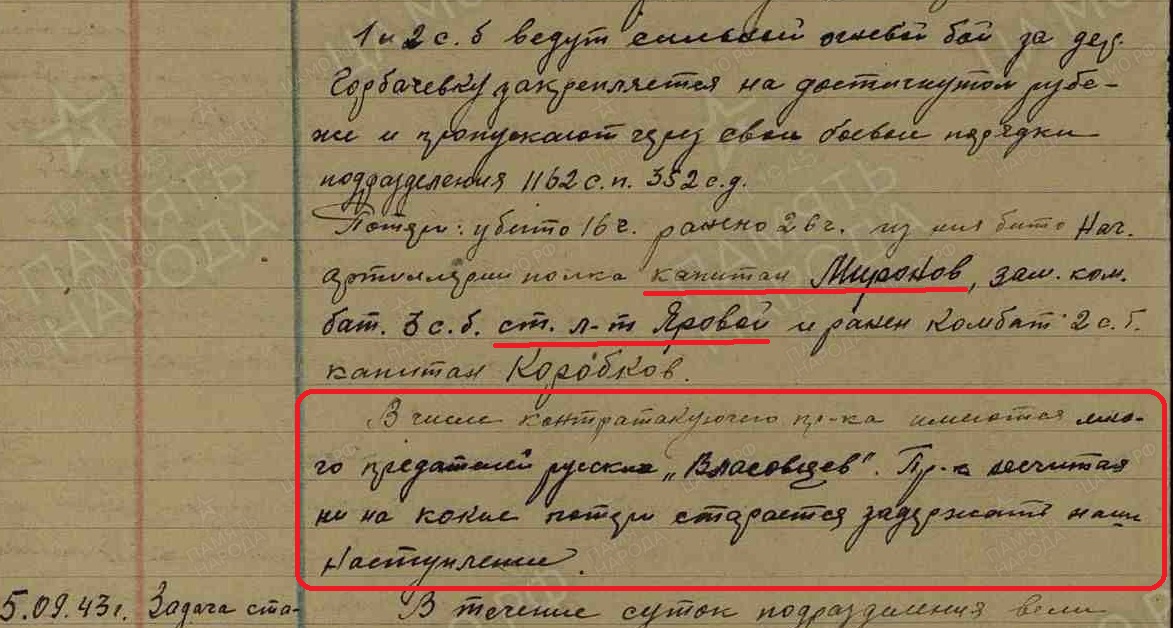 1 и 2 с.б ведут сильный огневой бой за дер.
Горбачевку закрепляется на достигнутом рубе-
жи и пропускают через свои боевые порядки
подразделения 1162 с.п. 352 с.д.
Потери: убито 16 ч. ранено 26 ч. из них убито Нач.
артиллерии полка капитан Миронов, зам. ком.
бат. 3 с.б. ст. л-т Яровой и ранен комбат 2 с.б.
капитан Коробков.
В числе контратакующего пр-ка имеются мно-
го предателей русских „Власовцев". Пр-к несчитая
ни на какие потери старается задержать наше
наступление.
5.09.43г. Задача ста- В течение суток подразделения вели
ПАМЯТЬ НАРОДА